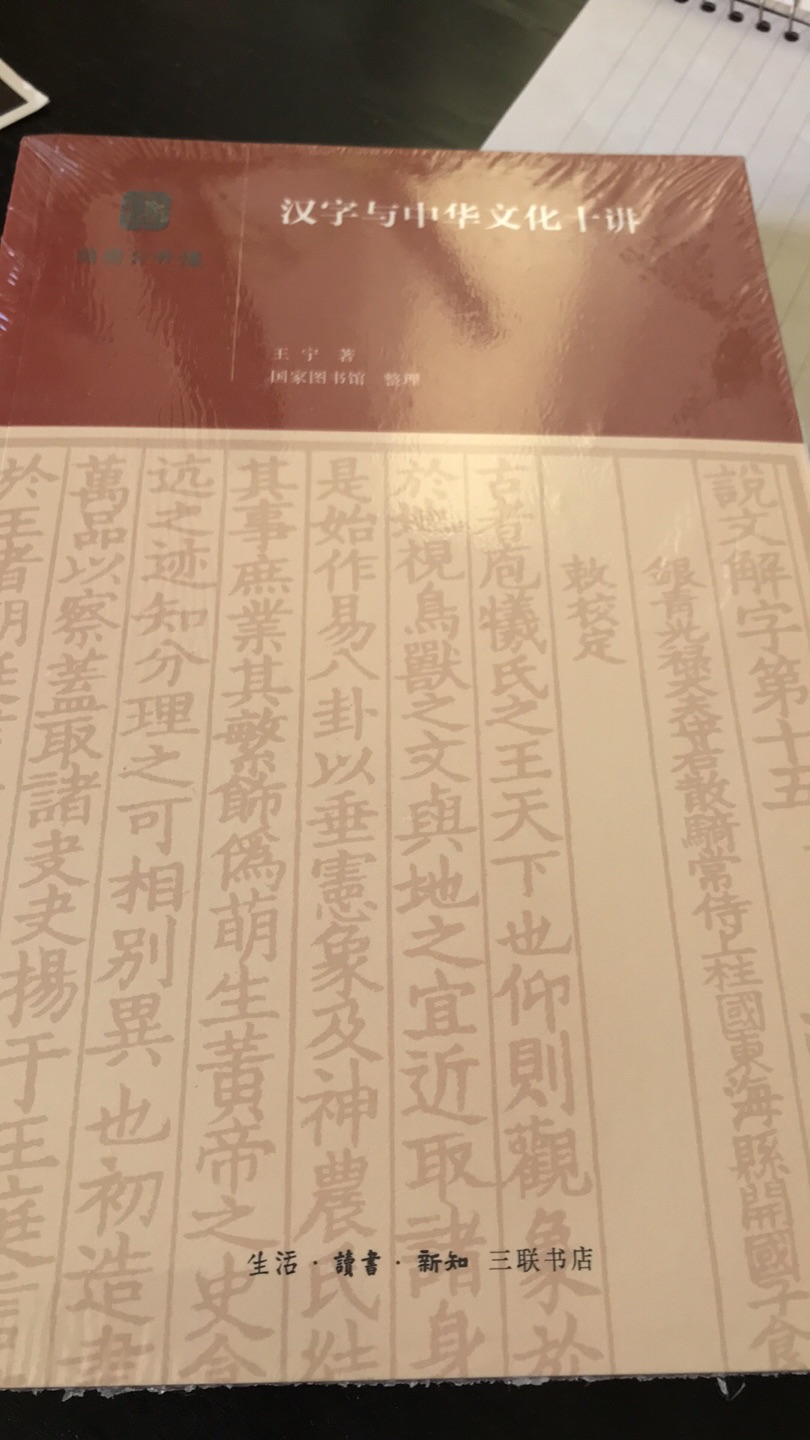 汉字与中华文化十讲
王宁 著
国家图书馆 整理
說文解字第十五
銀青光祿大夫守右散騎常侍上柱國東海縣開國子食
敕校定
古者庖犧氏之王天下也仰則觀象於
於地視鳥獸之文與地之宜近取諸身
是始作易八卦以垂憲象及神農氏結
其事庶業其繁飾偽萌生黃帝之史倉
迒之迹知分理之可相別異也初造書
萬品以察蓋取諸夬夬揚于王庭
於王者朝廷
生活·讀書·新知 三联书店